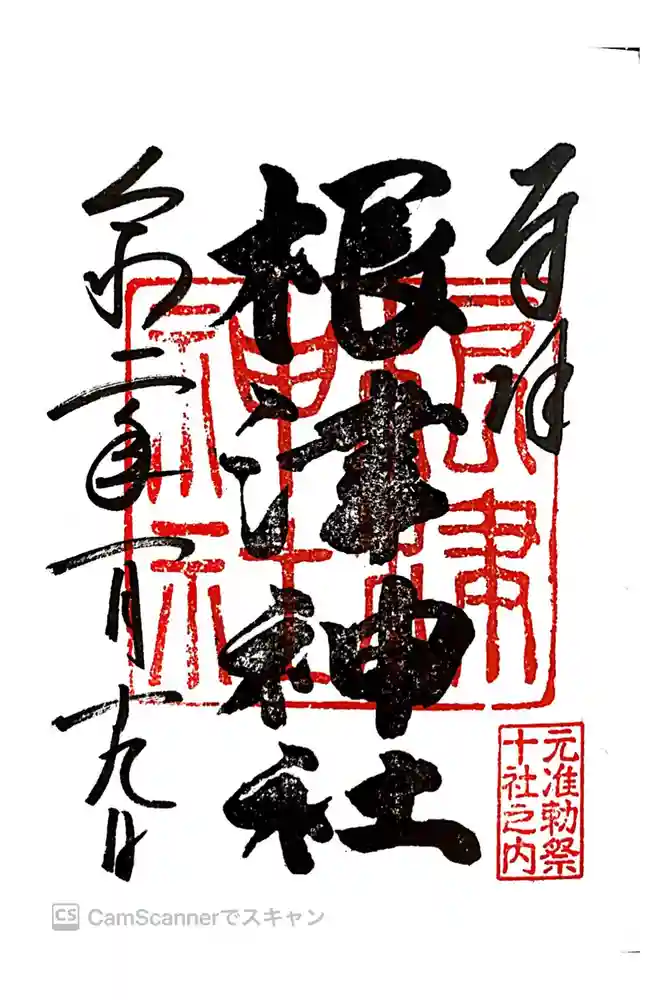 奉拝
根津神社
令和二年一月十九日
根津
神社
元准勅祭
十社之内
CS CamScannerでスキャン